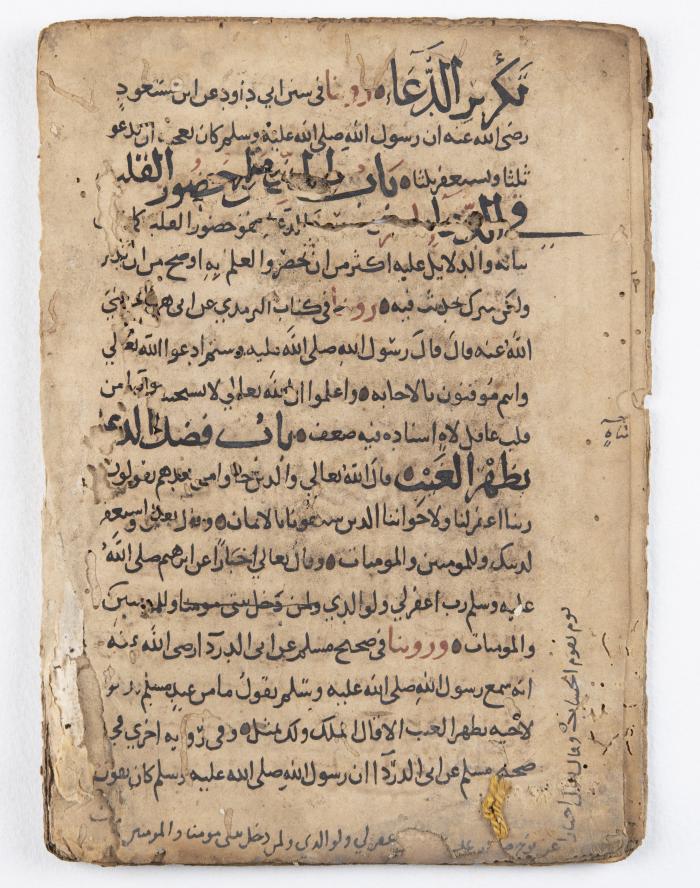 تكرير الدعاء ه روينا في سنن ابي داود عن ابن مسعود
رضى الله عنه ان رسول الله صلى الله عليه وسلم كان يعجبه ان يدعو
ثلثا ويستغفر ثلثا ه باب الحث على حضور القلب
في الدعا حضور القلب كما
بيانه والدلايل عليه اكثر من ان تحصر والعلم به اوضح من ان يذكر
ولكن نتبرك بحديث فيه ه روينا في كتاب الترمذي عن ابي هريرة رضي
الله عنه قال قال رسول الله صلى الله عليه وسلم ادعوا الله تعالي
وانتم موقنون بالاجابه ه واعلموا ان الله تعالي لا يستجيب دعآ من
قلب غافل لاه اسناده فيه ضعف ه باب فضل الدعا
بظهر الغيب ه قال الله تعالي والذين جاوا من بعدهم يقولون
ربنا اغفر لنا ولاخواننا الذين سبقونا بالايمان ه وقال تعالى واستغفر
لذنبك وللمومنين والمومنات ه وقال تعالي اخبارا عن ابرهيم صلى الله
عليه وسلم رب اغفر لي ولوالدي ولمن دخل بيتى مومنا وللمومنين
والمومنات ه وروينا في صحيح مسلم عن ابى الدردآ رضى الله عنه
انه سمع رسول الله صلى الله عليه وسلم يقول ما من عبد مسلم يدعو
لاخيه بظهر الغيب الا قال الملك ولك بمثل ه وفي روايه اخرى في
صحيح مسلم عن ابى الدردآ ان رسول الله صلى الله عليه وسلم كان يقول
يوم يقوم الحساب ه وقال تعالى اخبارا
عن نوح عليه اغفر لي ولوالدي ولمن دخل بيتى مومنا وللمومنين